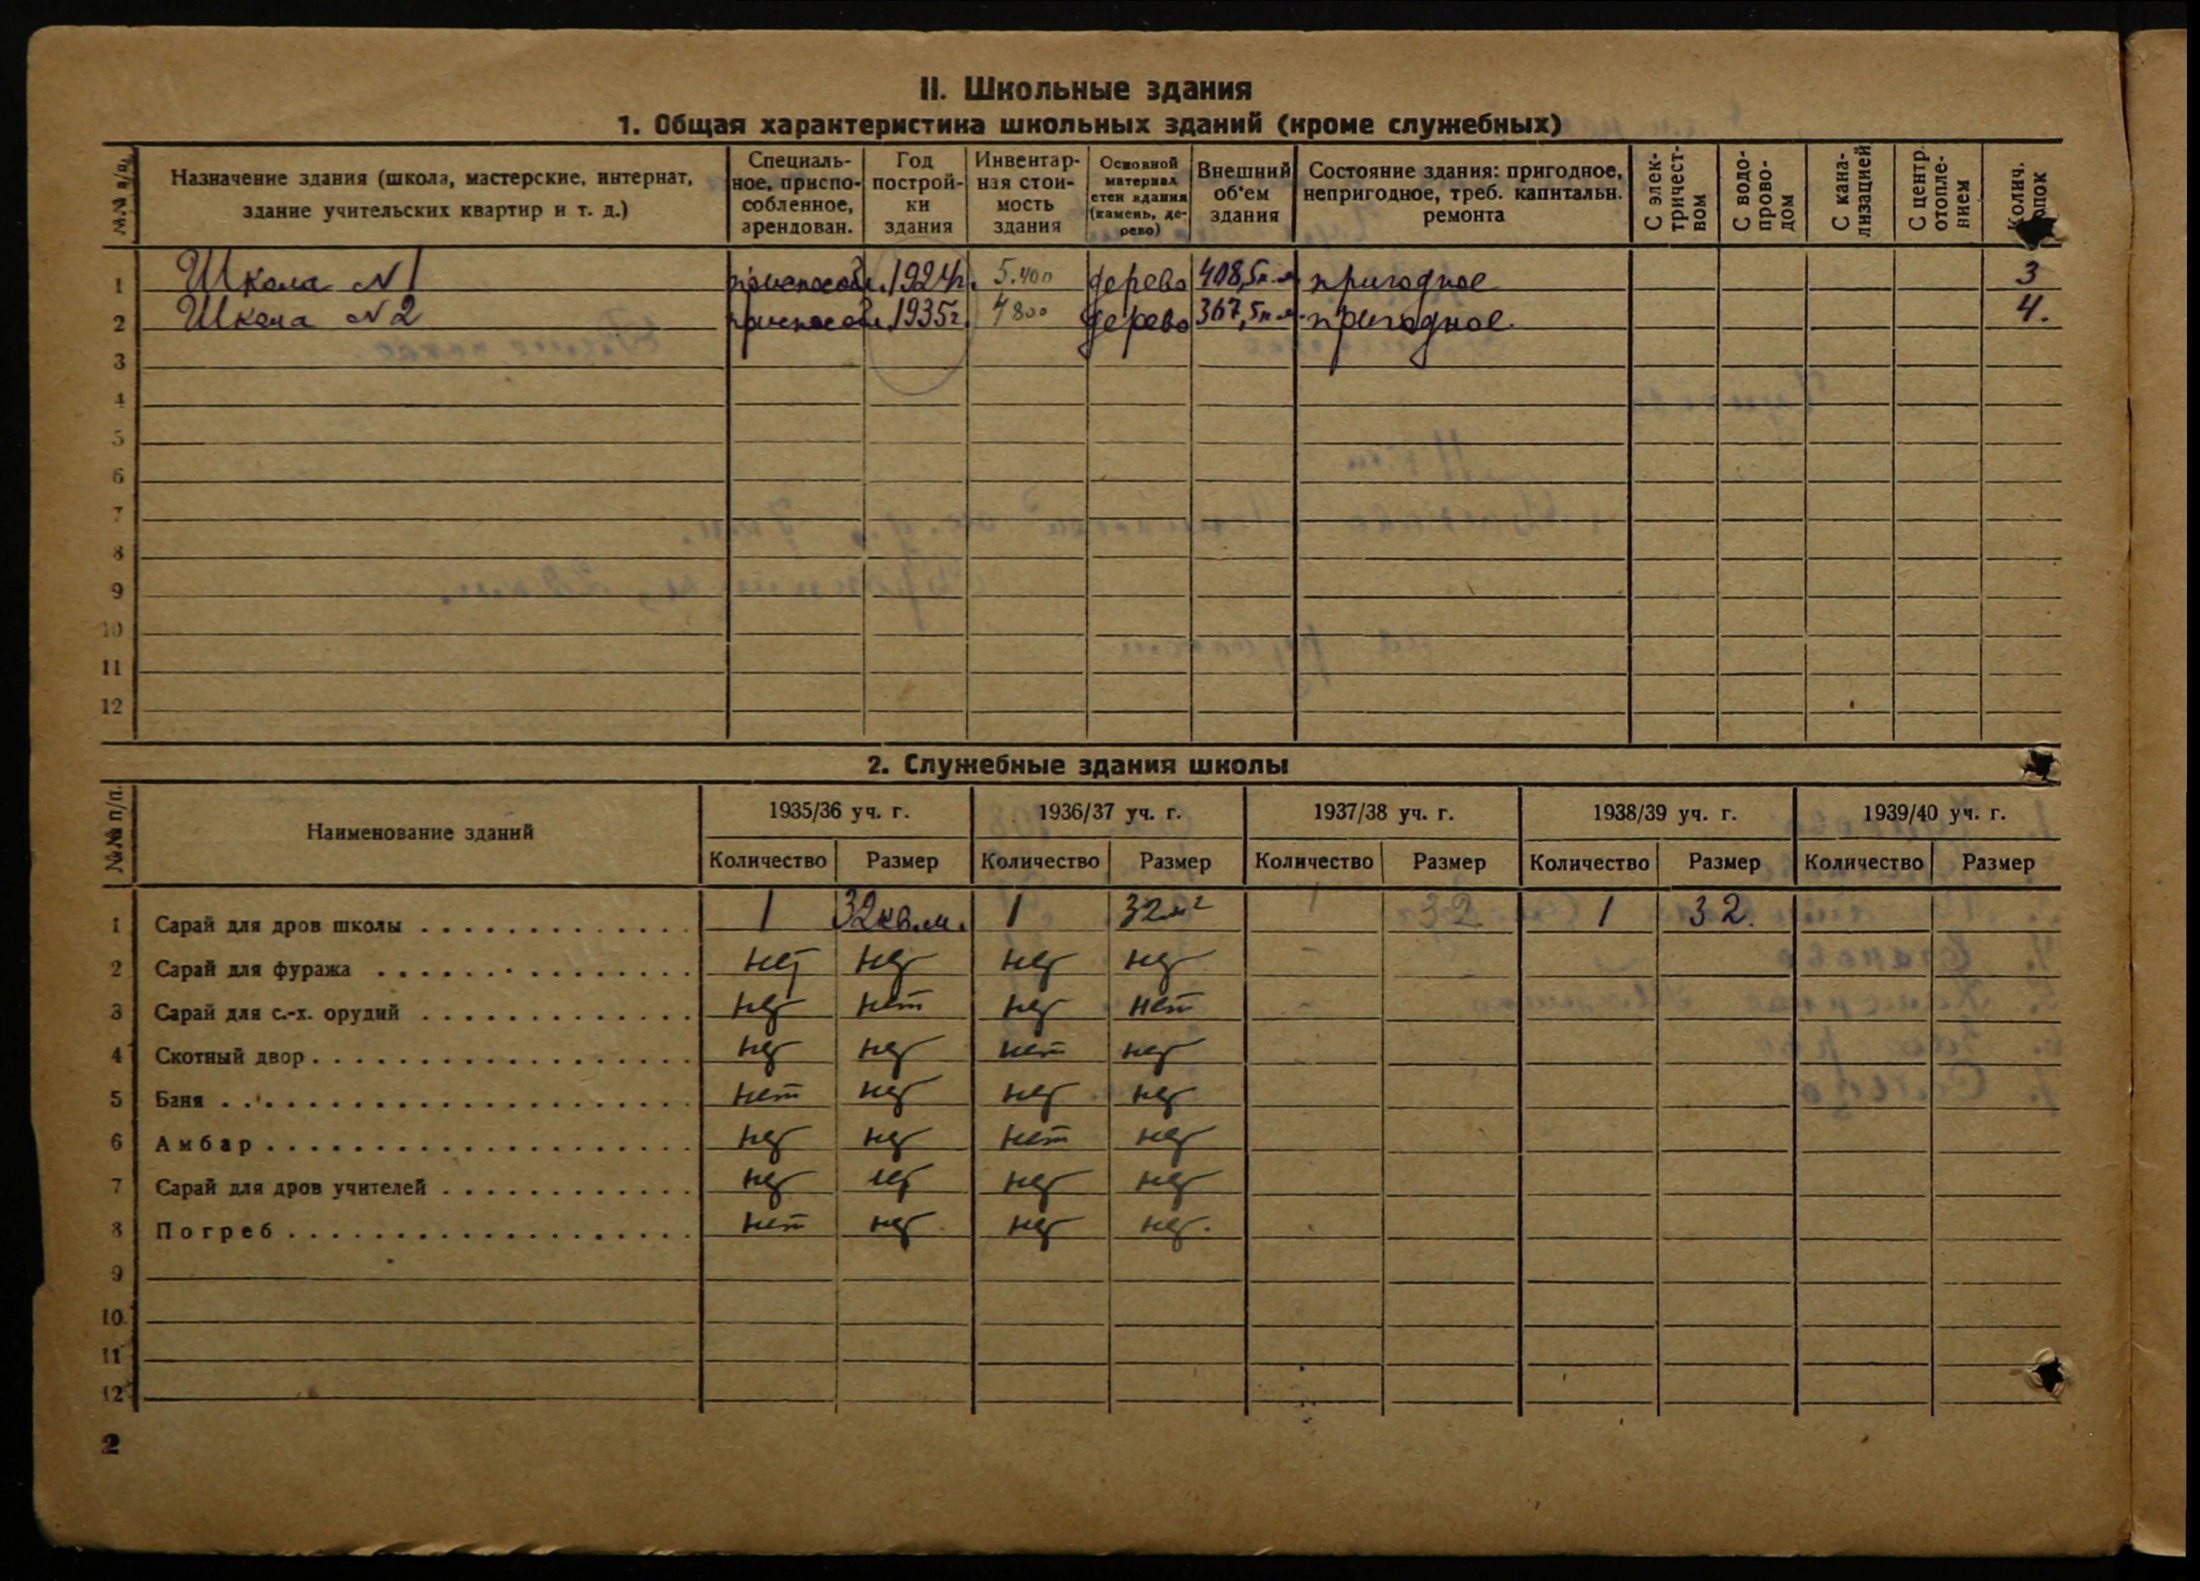 II. Школьные здания
1. Общая характеристика школьных зданий (кроме служебных)
№№ п/п. Назначение здания (школа, мастерские, интернат, здание учительских квартир и т. д.) Специальное, приспособленное, арендован. Год постройки здания Инвентарная стоимость здания Основной материал стен здания (камень, дерево) Внешний об'ем здания Состояние здания: пригодное, непригодное, треб. капитальн. ремонта С электричеством С водопроводом С канализацией С центр. отоплением Колич. топок
1 Школа N1 приспособл. 1924г. 5.400 дерево 408,5к.м. пригодное 3
2 Школа N2 приспособл. 1935г. 4800 дерево 367,5к.м. пригодное. 4.
3
4
5
6
7
8
9
10
11
12
2. Служебные здания школы
№№ п/п. Наименование зданий 1935/36 уч. г. 1936/37 уч. г. 1937/38 уч. г. 1938/39 уч. г. 1939/40 уч. г.
Количество Размер Количество Размер Количество Размер Количество Размер Количество Размер
1 Сарай для дров школы 1 32кв.м. 1 32м² 1 32 1 32.
2 Сарай для фуража нет нет нет нет -
3 Сарай для с.-х. орудий нет нет нет нет -
4 Скотный двор нет нет нет нет
5 Баня нет нет нет нет
6 Амбар нет нет нет нет
7 Сарай для дров учителей нет нет нет нет
8 Погреб нет нет нет нет.
9
10
11
12
2